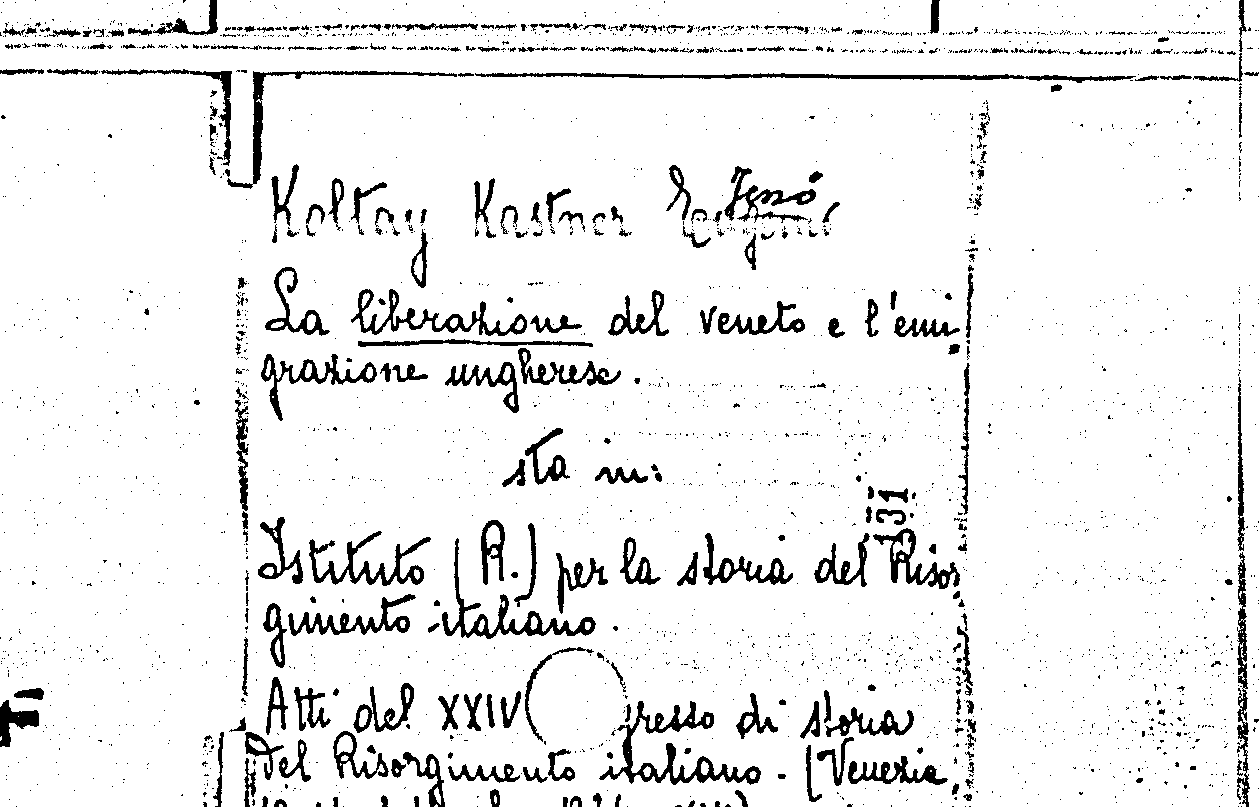 Koltay Kastner Jenö
La liberazione del veneto e l'emi
grazione ungherese.
sta in:
131
Istituto (R.) per la storia del Risor
gimento italiano.
Atti del XXIV gresso di storia
del Risorgimento italiano. (Venezia